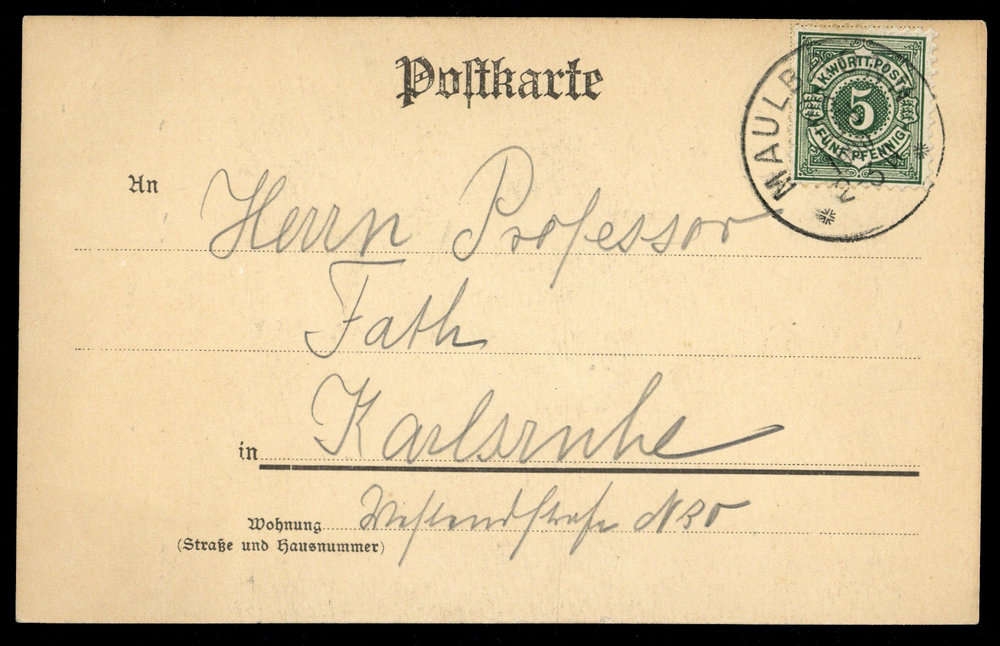 Postkarte
K.WÜRTT.POST
5
FÜNF PFENNIG
MAULB
An
Herrn Professor
Fath
in Karlsruhe
Wohnung Westendstraße
(Straße und Hausnummer)